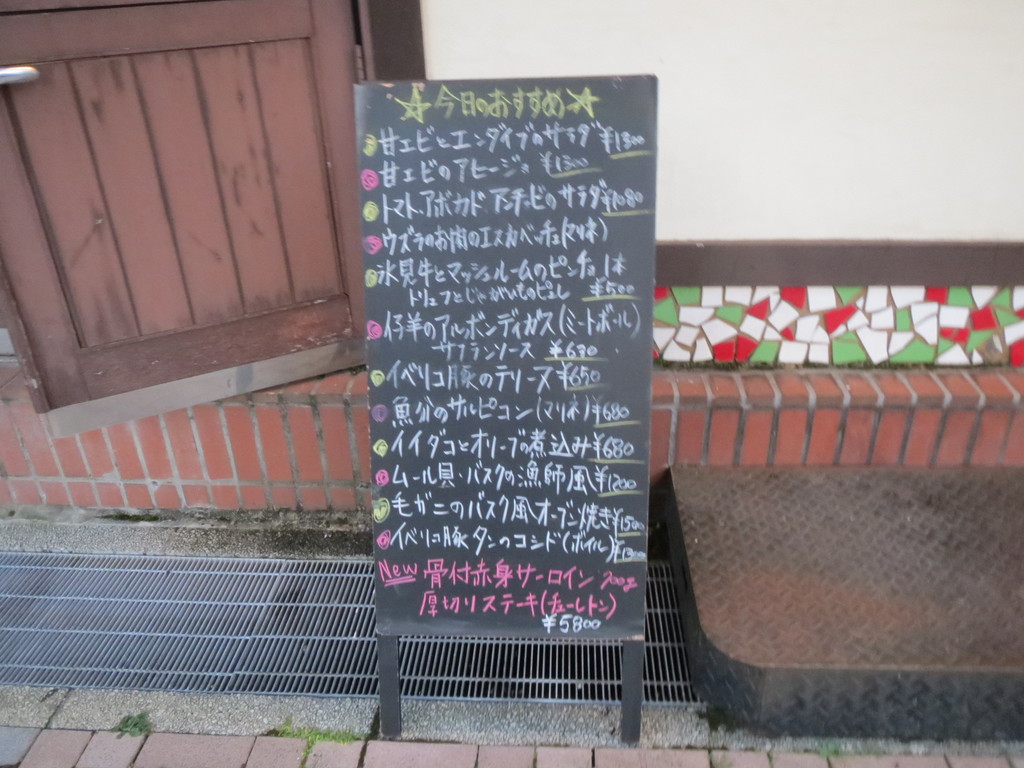 ☆今日のおすすめ☆
甘エビとエンダイブのサラダ ¥1300
甘エビのアヒージョ ¥1300
トマト、アボカド、アンチョビのサラダ ¥1080
ウズラのお肉のエスカベッチェ(マリネ)
氷見牛とマッシュルームのピンチョ 1本
トリュフとじゃがいものピュレ ¥500
仔羊のアルボンディガス(ミートボール)
サフランソース ¥630
イベリコ豚のテリーヌ ¥650
魚介のサルピコン(マリネ) ¥680
イイダコとオリーブの煮込み ¥680
ムール貝・バスクの漁師風 ¥1200
毛ガニのバスク風オーブン焼き ¥1500
イベリコ豚タンのコシド(ボイル)
New 骨付赤身サーロイン 700g
厚切りステーキ(チューレトン)
¥5800